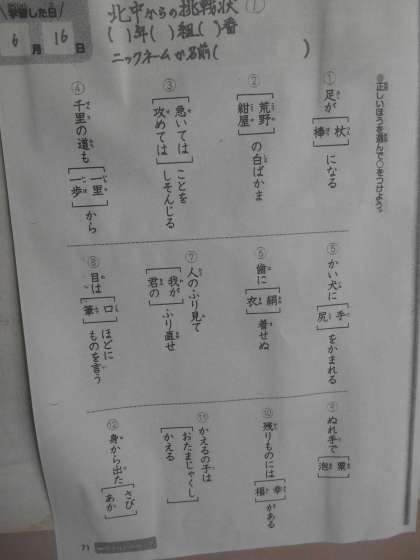 学習した日
6月16日
北中からの挑戦状①
( )年( )組( )番
ニックネームか名前( )
◎正しいほうを選んで○をつけよう。
① 足が[杖 棒]になる
② [荒野 紺屋]の白ばかま
③ [急いては 攻めては]ことをしそんじる
④ 千里の道も[一里 一歩]から
⑤ かい犬に[手 尻]をかまれる
⑥ 歯に[絹 衣]着せぬ
⑦ 人のふり見て[我が 君の]ふり直せ
⑧ 目は[口 筆]ほどにものを言う
⑨ ぬれ手で[粟 泡]
⑩ 残りものには[幸 福]がある
⑪ かえるの子は[おたまじゃくし かえる]
⑫ 身から出た[さび あか]
71